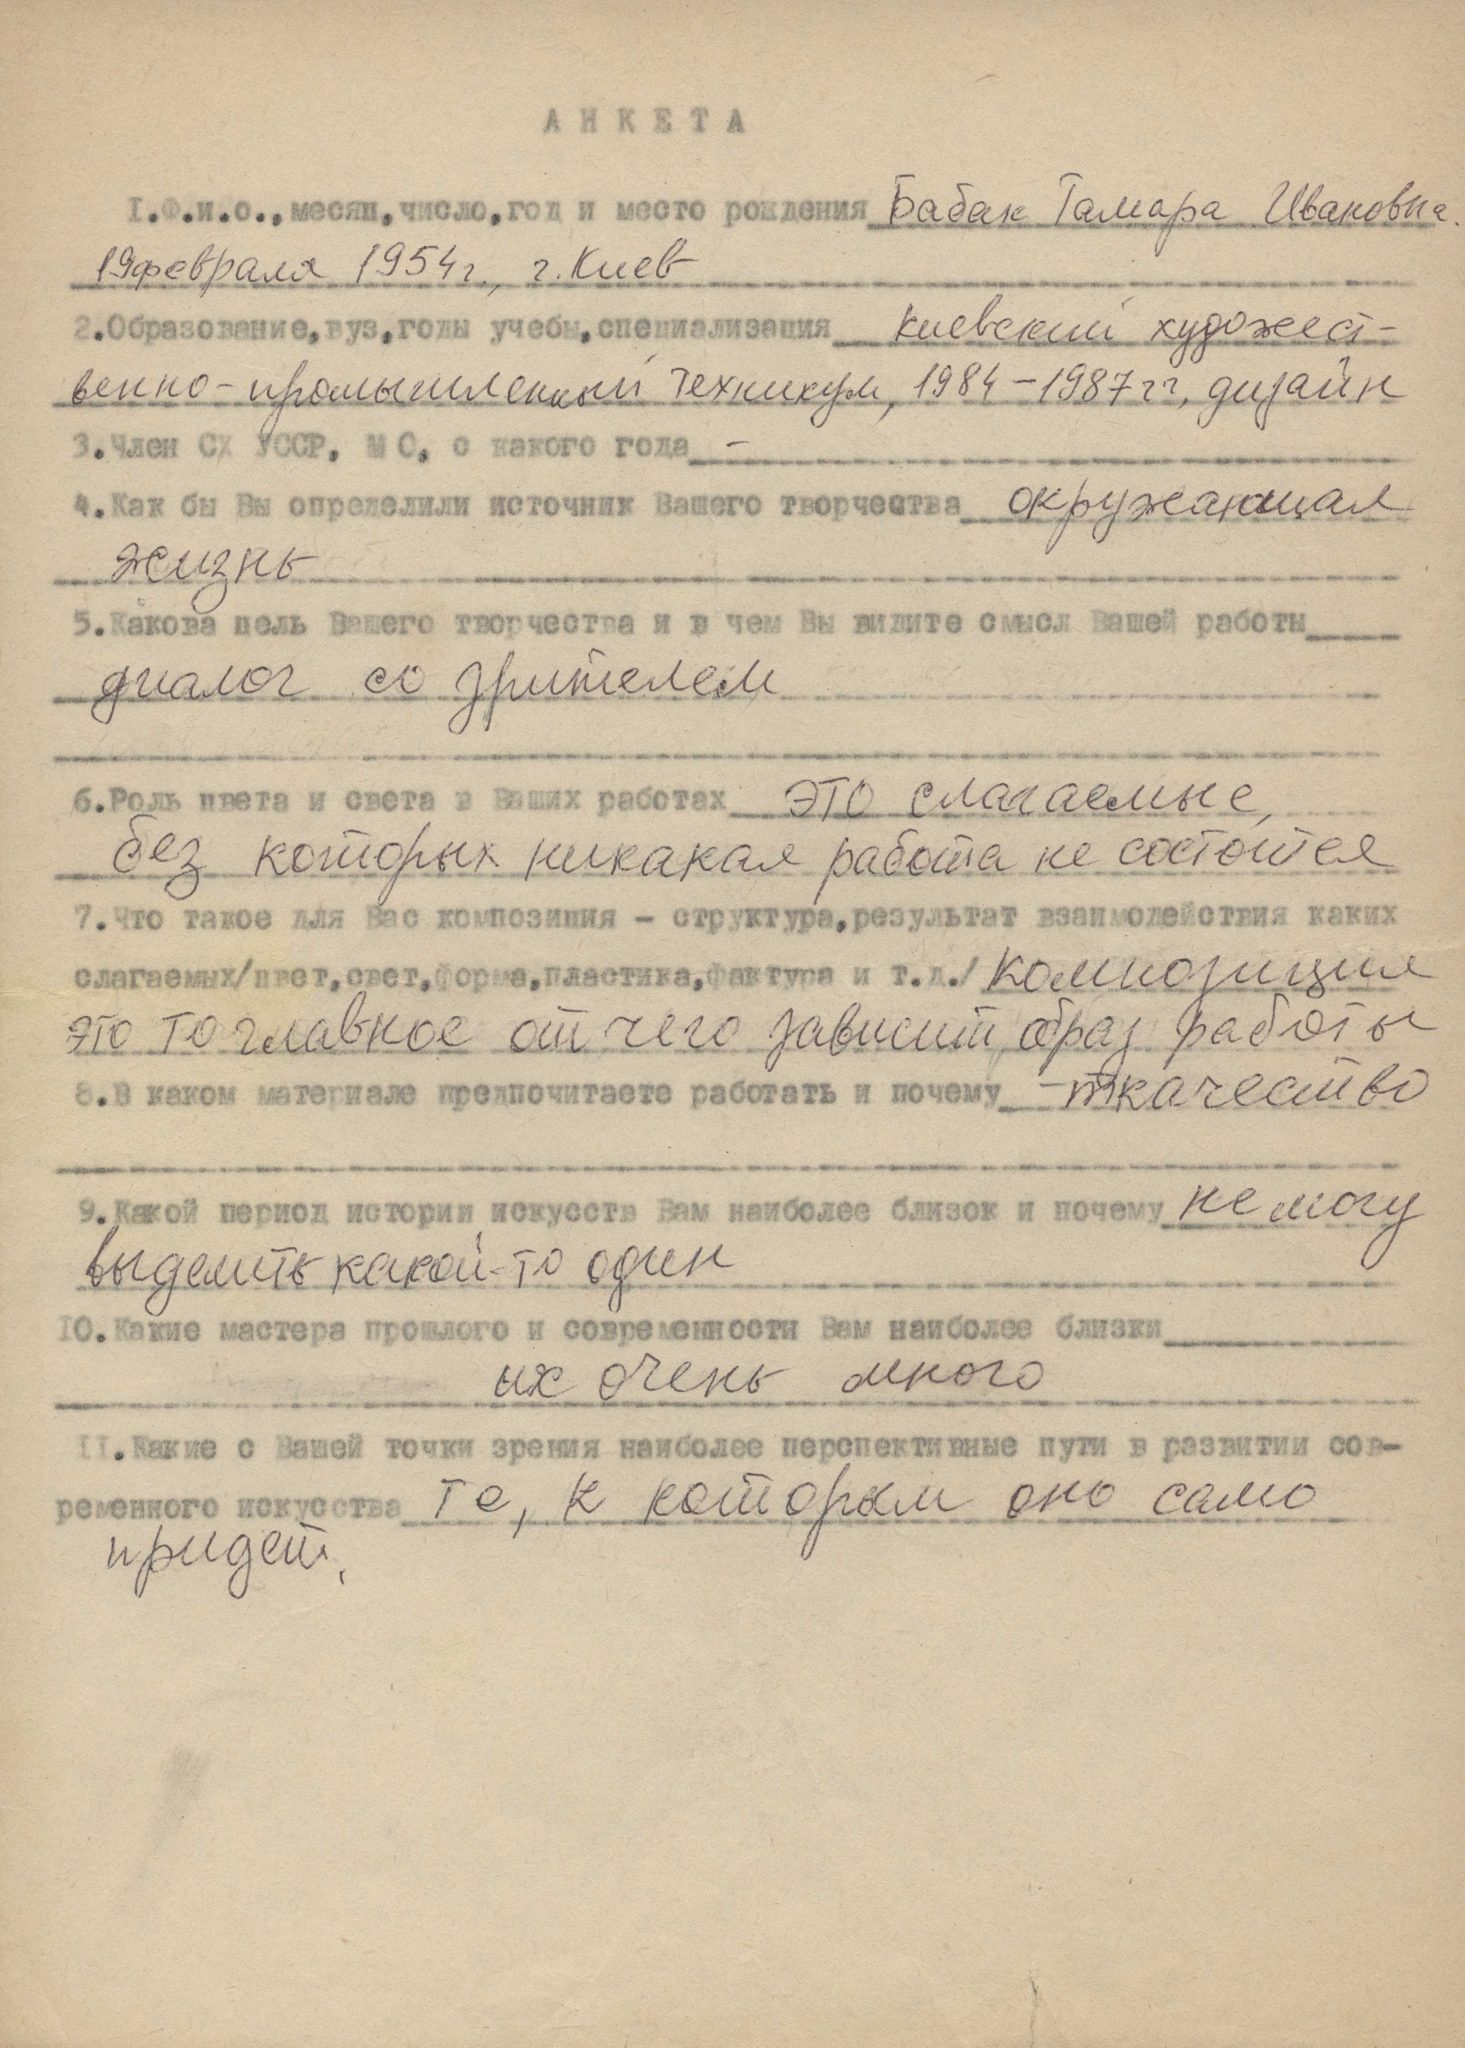 АНКЕТА
I.Ф.и.о.,месяц,число,год и место рождения Бабак Тамара Ивановна.
19 февраля 1954г., г. Киев
2.Образование,вуз,годы учебы,специализация киевский художест-
венно-промышленный техникум, 1984-1987 гг, дизайн
3.Член СХ УССР, МС, с какого года -
4.Как бы Вы определили источник Вашего творчества окружающая
жизнь
5.Какова цель Вашего творчества и в чем Вы видите смысл Вашей работы
диалог со зрителем
6.Роль цвета и света в Ваших работах это слагаемые,
без которых никакая работа не состоится
7.Что такое для Вас композиция - структура,результат взаимодействия каких
слагаемых/цвет,свет,форма,пластика,фактура и т.д./ композиция
это то главное от чего зависит образ работы
8.В каком материале предпочитаете работать и почему -ткачество
9.Какой период истории искусств Вам наиболее близок и почему не могу
выделить какой-то один
10.Какие мастера прошлого и современности Вам наиболее близки
их очень много
II.Какие с Вашей точки зрения наиболее перспективные пути в развитии сов-
ременного искусства те, к которым оно само
придет.